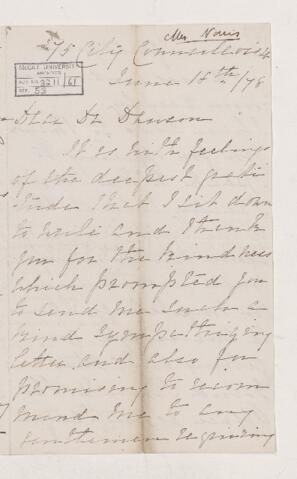 Mrs Norris
75 City Councillors St
McGILL UNIVERSITY
ARCHIVES
ACC. NO. 2211/61
REF. 53
June 15th/78
Dear Dr Dawson
It is with feelings
of the deepest grati
tude that I sit down
to write and thank
you for the kindness
which prompted you
to send me such a
kind sympathizing
letter and also for
promising to recom
mend me to any
gentlemen requiring